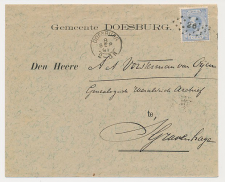 Gemeente DOESBURG.
Den Heere A A Vorsterman van Oijen
Genealogisch Heraldiek Archief
te
's Gravenhage